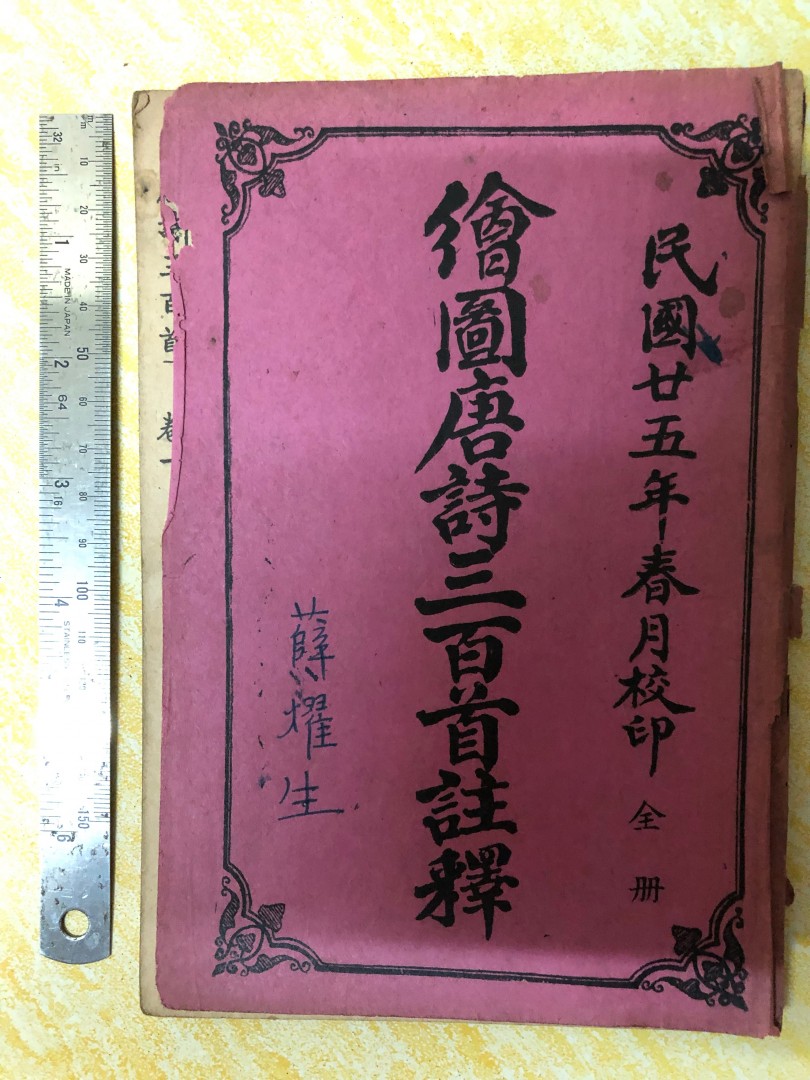 民國廿五年春月校印 全册
繪圖唐詩三百首註釋
薛耀生
三百首 卷一
mm 10 20 30 40 50 60 70 80 90 100 110 150
32 in 1 2 64 3 16 4 6
MADE IN JAPAN